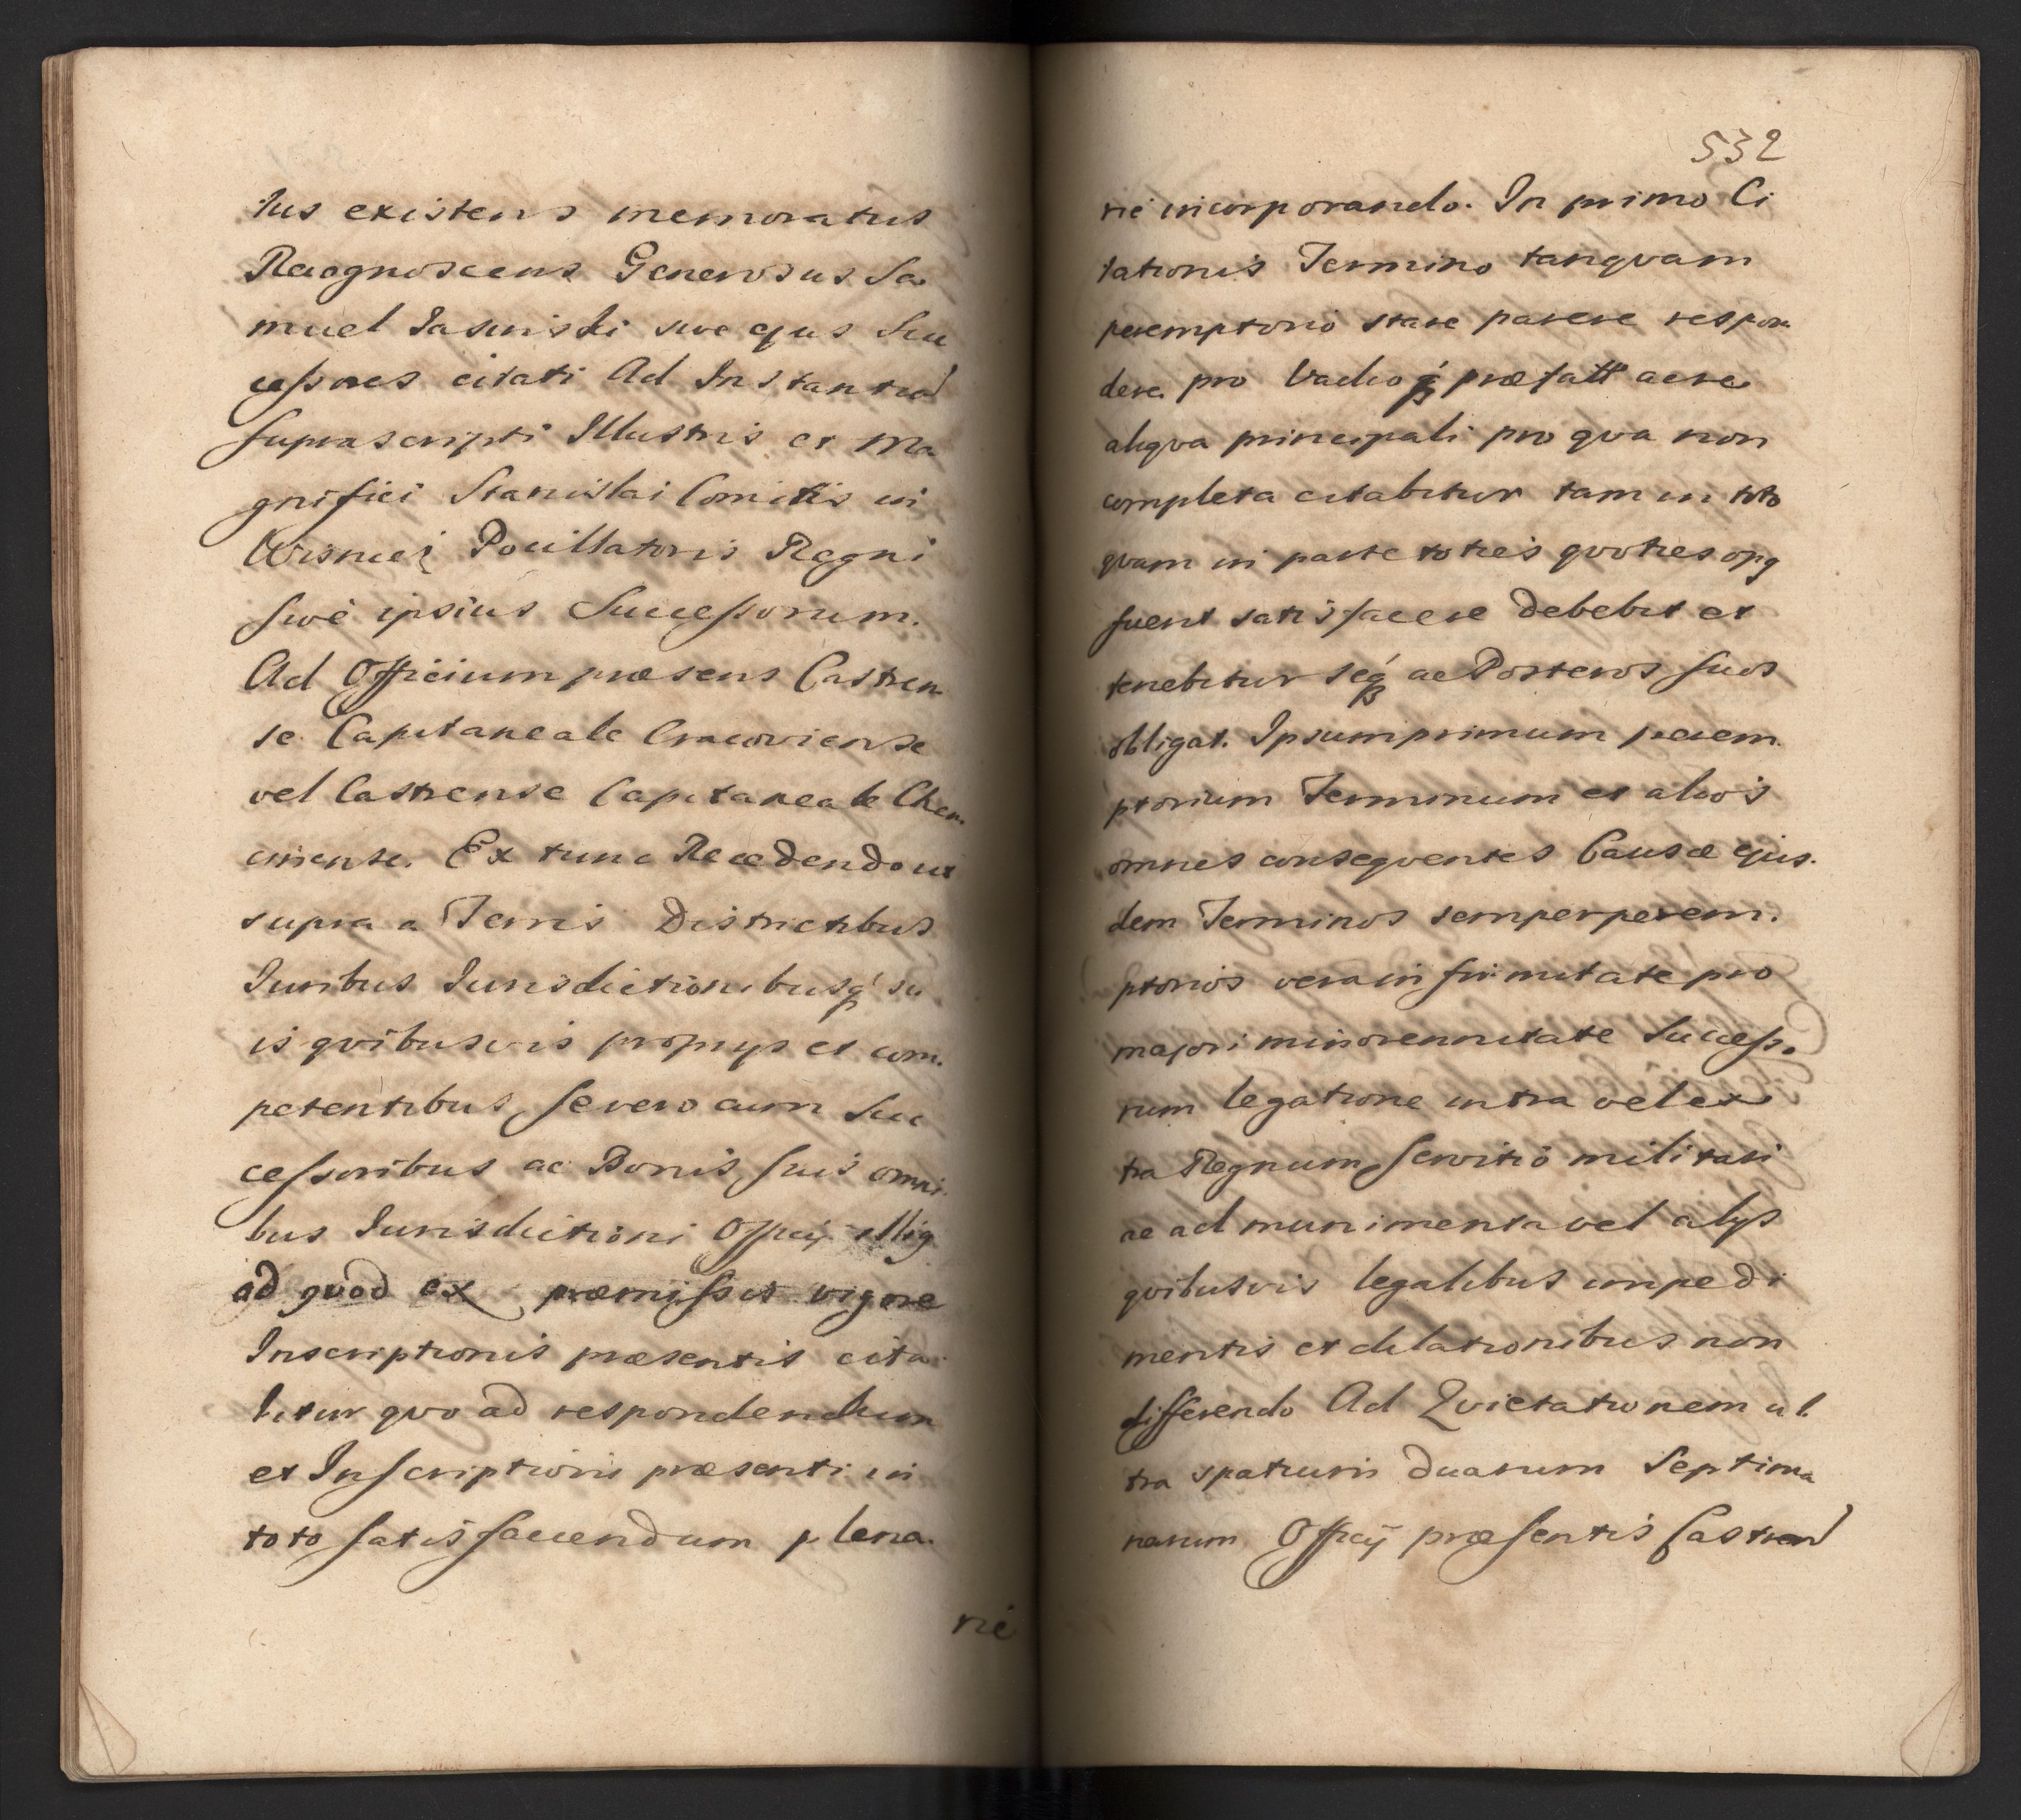 tus existens memoratus
Recognoscens Generosus Sa
muel Jasinski sive ejus Suc
cessores citati Ad Instantiā
suprascripti Illustris et Ma
gnifici Stanislai Comitis in
Wisnicz Pocillatoris Regni
sive ipsius Successorum.
Ad Officium præsens Castren
se Capitaneale Cracoviense
vel Castrense Capitaneale Chen
ciniense. Ex tunc Recedendo ut
supra a Terris Districtibus
Juribus Jurisdictionibusq́ su
is qvibusvis proprys et com.
petentibus, se vero cum Suc
cessoribus ac Bonis suis omni.
bus Jurisdictioni Officij illig
ad qvod ex præmissis vigore
Inscriptionis præsentis cita
bitur qvo ad respondendum
et Inscriptioni præsenti in
toto satisfaciendum plena.
riè
532
riè incorporando. In primo Ci
tationis Termino tanqvam
peremptorio stare parere respon
dere pro Vadioq́ præfatt aere
aliqva principali pro qva non
completa citabitur tam in toto
qvam in parte toties qvoties opg
fuerit satisfacere debebit et
tenebitur seq́ ac Posteros suos
obligat. Ipsum primum perem.
ptorium Terminum et alios
omnes conseqventes Causæ ejus.
dem Terminos semper perem.
ptorios vera infirmitate pro
majori minorennitate Success.
rum legatione intra vel ex
tra Regnum, servitio militari
ac ad munimenta vel alys
qvibusvis legalibus impedi
mentis et dilationibus non
differendo Ad Qvietationem ul.
tra spatium duarum Septima
narum Officij præsentis Castren